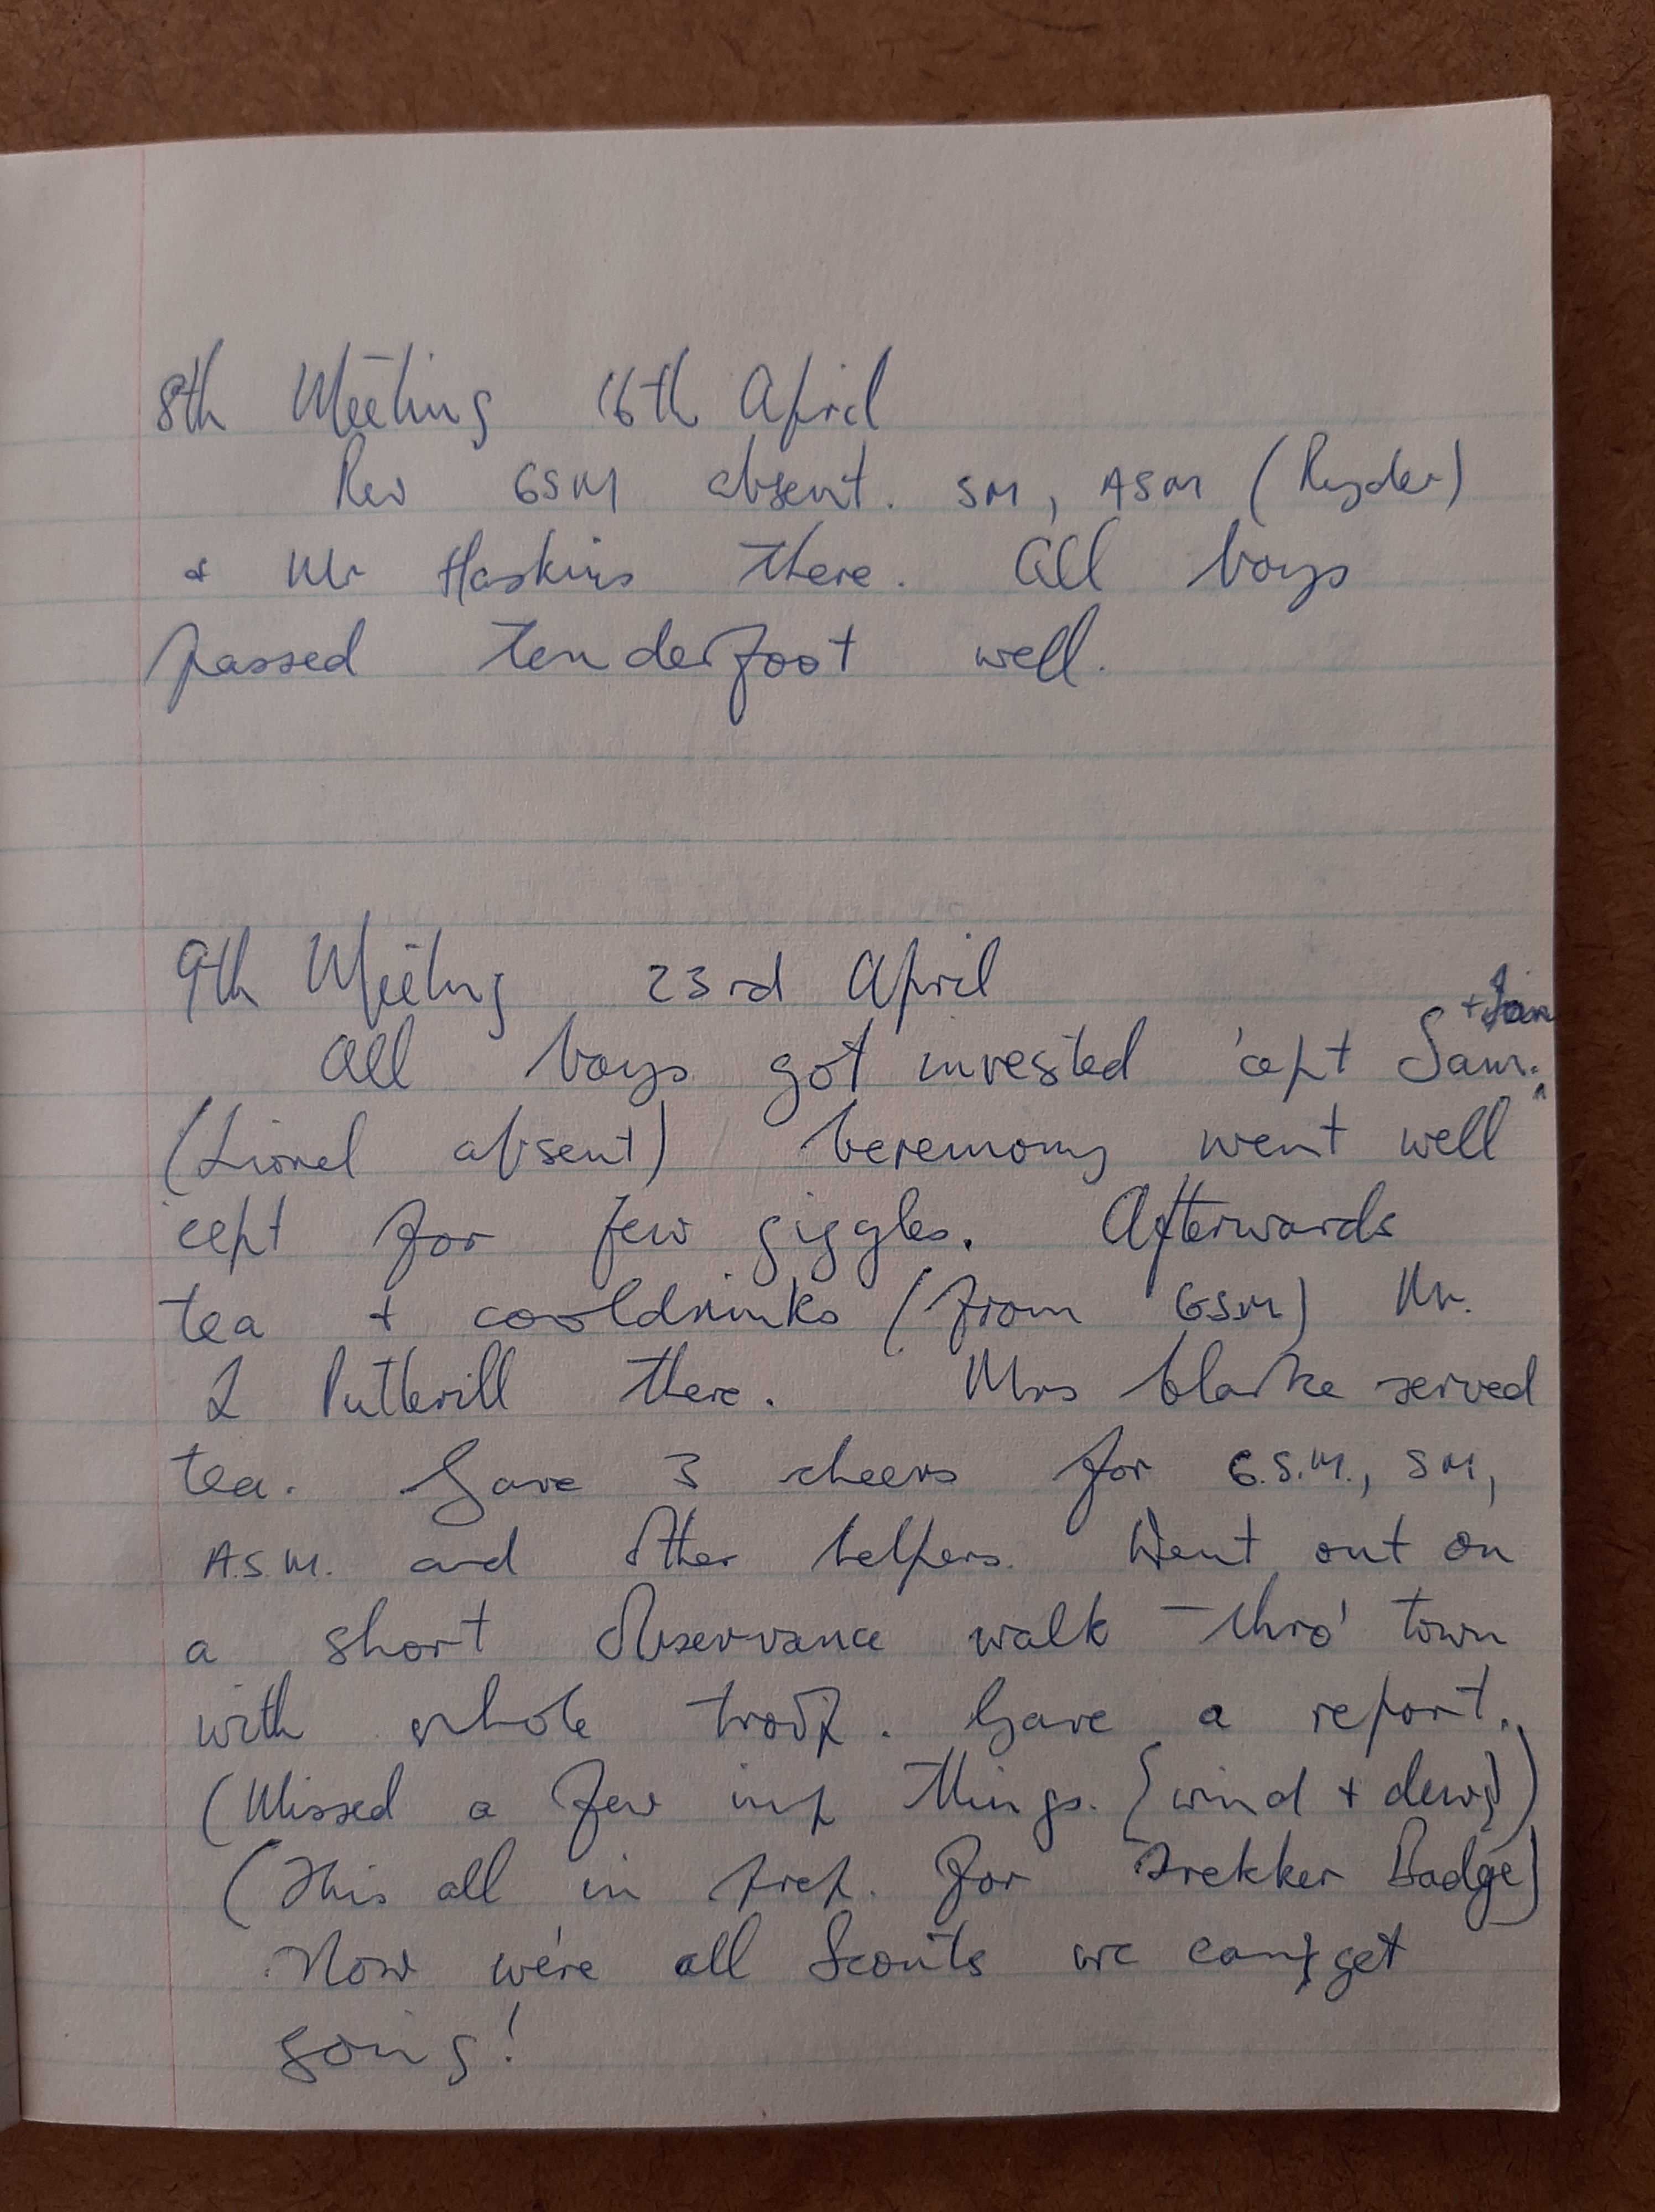 8th Meeting 16th April
Rev GSM absent. SM, ASM (Ryder)
+ Mr Haskins there. All boys
passed tenderfoot well.
9th Meeting 23rd April
+ Ian
All boys got invested 'cept Sam.
(Lionel absent) Ceremony went well
'cept for few giggles. Afterwards
tea + cooldrinks (from GSM) Mr.
L Putterill there. Mrs Clarke served
tea. Gave 3 cheers for G.S.M., SM,
A.S.M. and other helpers. Went out on
a short observance walk thro' town
with whole troop. Gave a report.
(Missed a few imp things. {wind + dew})
(This all in prep. for Trekker Badge)
Now we're all Scouts we can get
going!